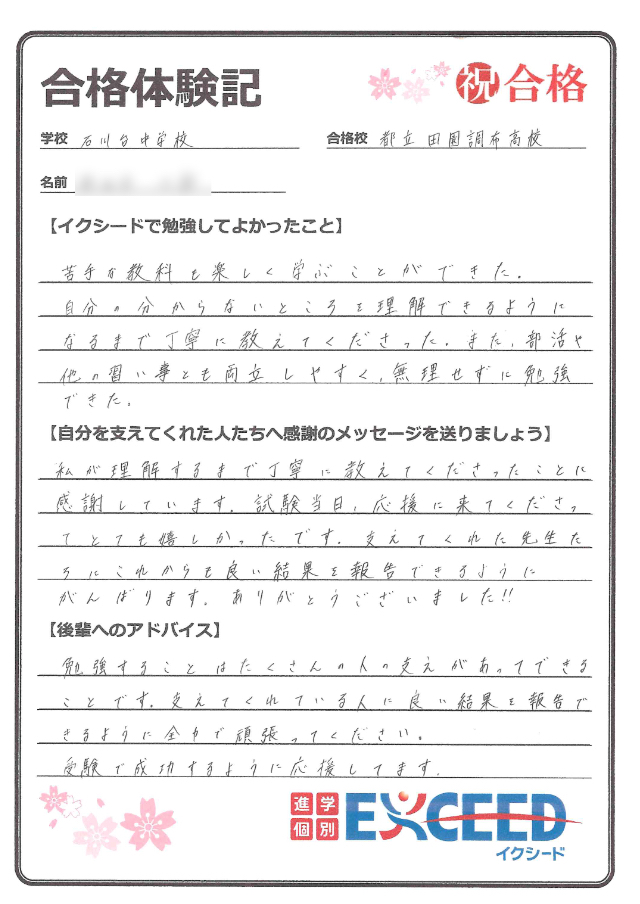 合格体験記
祝 合格
学校 石川台中学校
合格校 都立田園調布高校
名前
【イクシードで勉強してよかったこと】
苦手な教科も楽しく学ぶことができた。
自分の分からないところを理解できるように
なるまで丁寧に教えてくださった。また、部活や
他の習い事とも両立しやすく、無理せずに勉強
できた。
【自分を支えてくれた人たちへ感謝のメッセージを送りましょう】
私が理解するまで丁寧に教えてくださったことに
感謝しています。試験当日、応援に来てくださっ
てとても嬉しかったです。支えてくれた先生た
ちにこれからも良い結果を報告できるように
がんばります。ありがとうございました!!
【後輩へのアドバイス】
勉強することはたくさんの人の支えがあってできる
ことです。支えてくれている人に良い結果を報告で
きるように全力で頑張ってください。
受験で成功するように応援してます。
進学
個別
EXCEED
イクシード